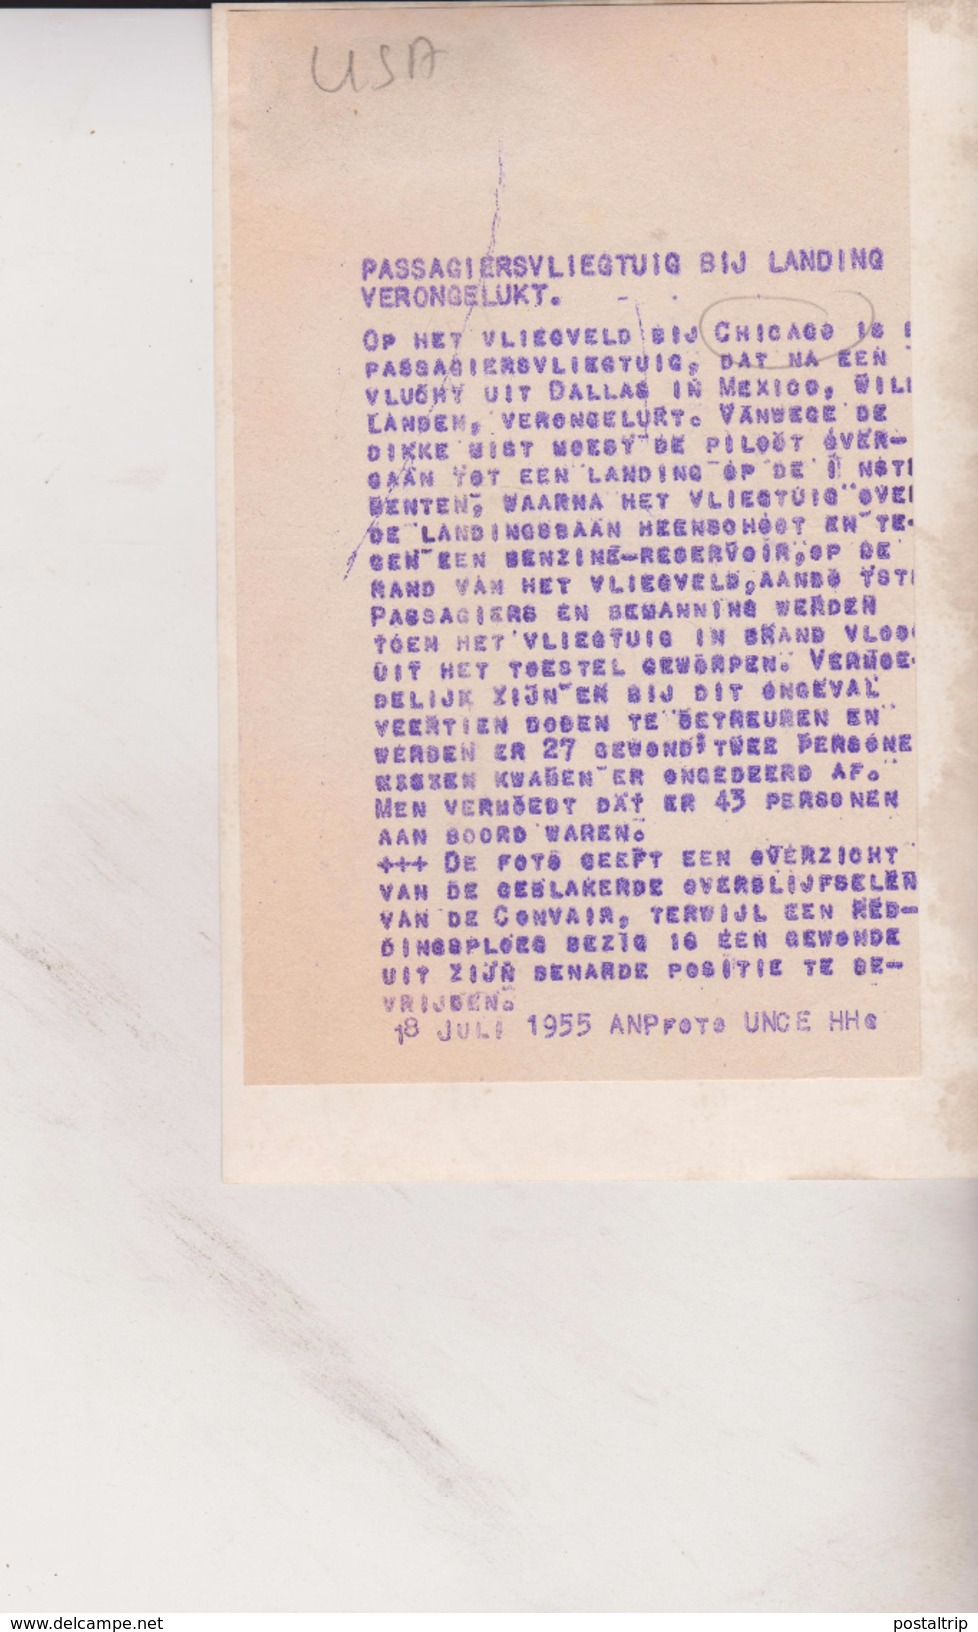 USA
PASSAGIERSVLIEGTUIG BIJ LANDING
VERONGELUKT.
OP HET VLIEGVELD BIJ CHICAGO IS
PASSAGIERSVLIEGTUIG, DAT NA EEN
VLUCHT UIT DALLAS IN MEXICO, WIL
LANDEN, VERONGELUKT. VANWEGE DE
DIKKE MIST MOEST DE PILOOT OVER-
GAAN TOT EEN LANDING OP DE I NSTR
MENTEN, WAARNA HET VLIEGTUIG OVE
DE LANDINGSBAAN HEENSCHOOT EN TE-
GEN EEN BENZINE-RESERVOIR,OP DE
RAND VAN HET VLIEGVELD,AANBO TST
PASSAGIERS EN BEMANNING WERDEN
TOEN HET VLIEGTUIG IN BRAND VLOO
UIT HET TOESTEL GEWORPEN. VERMOE-
DELIJK ZIJN ER BIJ DIT ONGEVAL
VEERTIEN DODEN TE BETREUREN EN
WERDEN ER 27 GEWOND; TWEE PERSONE
KWAMEN ER ONGEDEERD AF.
MEN VERMOEDT DAT ER 43 PERSONEN
AAN BOORD WAREN.
+++ DE FOTO GEEFT EEN OVERZICHT
VAN DE GEBLAKERDE OVERBLIJFSELEN
VAN DE CONVAIR, TERWIJL EEN RED-
DINGSPLOEG BEZIG IS EEN GEWONDE
UIT ZIJN BENARDE POSITIE TE BE-
VRIJDEN.
18 JULI 1955 ANPFOTO UNCE HHG
www.delcampe.net
postaltrip